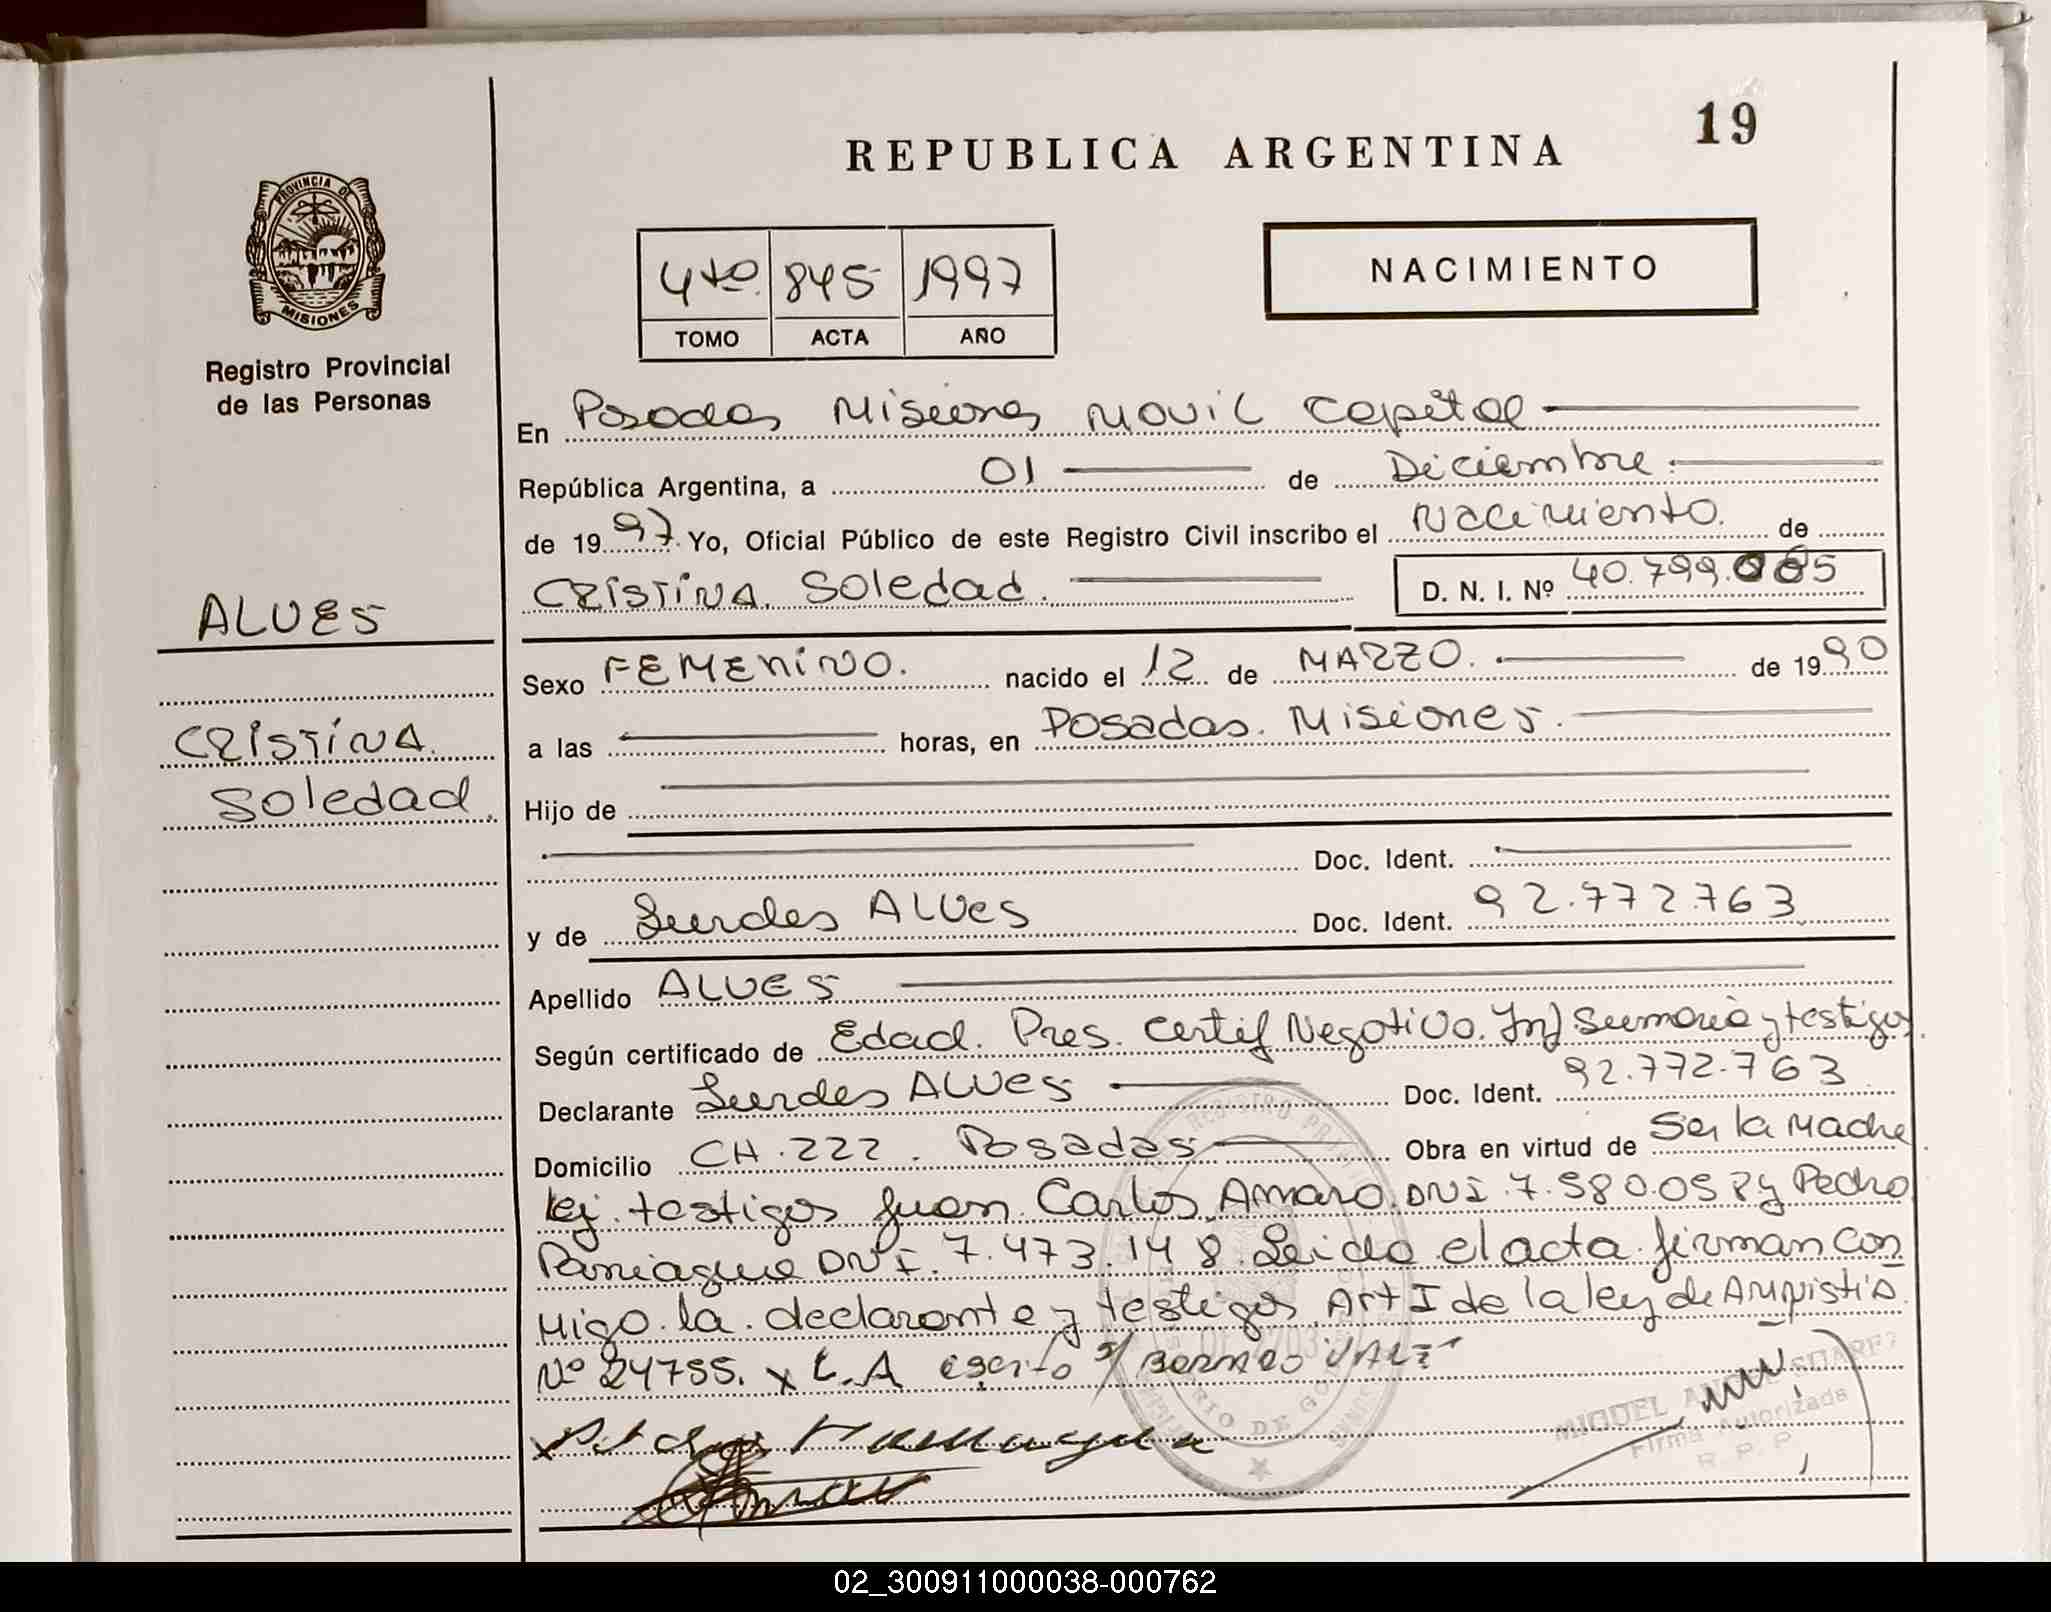 19
REPUBLICA ARGENTINA
PROVINCIA DE
MISIONES
Registro Provincial
de las Personas
4to. 845 1997
TOMO ACTA AÑO
NACIMIENTO
En Posadas Misiones Movil Capital
República Argentina, a 01 de Diciembre
de 1997 Yo, Oficial Público de este Registro Civil inscribo el Nacimiento. de
CRISTINA Soledad. D. N. I. Nº 40.799.085
ALVES
CRISTINA
Soledad
Sexo FEMENINO. nacido el 12 de MARZO. de 1990
a las horas, en Posadas. Misiones.
Hijo de
Doc. Ident.
y de Lurdes ALVES Doc. Ident. 92.772.763
Apellido ALVES
Según certificado de Edad. Pres. Certif Negativo. Inf Sumaria y testigos
Declarante Lurdes ALVES Doc. Ident. 92.772.763
Domicilio CH. 222. Posadas Obra en virtud de Ser la Madre
testigos Juan Carlos Amaro. DNI. 7.580.058 y Pedro
Paniagua DNI. 7.473.148. Leida el acta firman con
migo la declarante y testigos Art I de la ley de Amnistia
Nº 24755. x L.A escrito s/ Borrado VALE
MIGUEL ANGEL
Firma Autorizada
R. P. P.
02_300911000038-000762